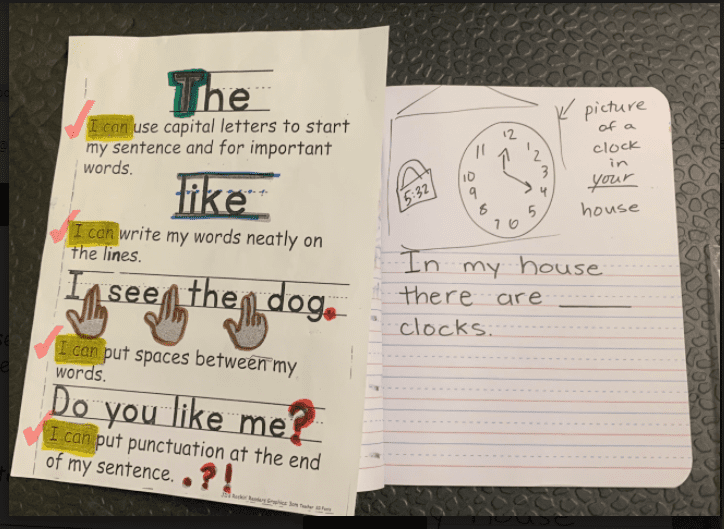 The
I can use capital letters to start
my sentence and for important
words.
like
I can write my words neatly on
the lines.
I see the dog.
I can put spaces between my
words.
Do you like me?
I can put punctuation at the end
of my sentence. . ? !
picture
of a
clock
in
your
house
12
11 1
2
10 3
9 4
8 5
7 6
5:32
In my house
there are ____
clocks.